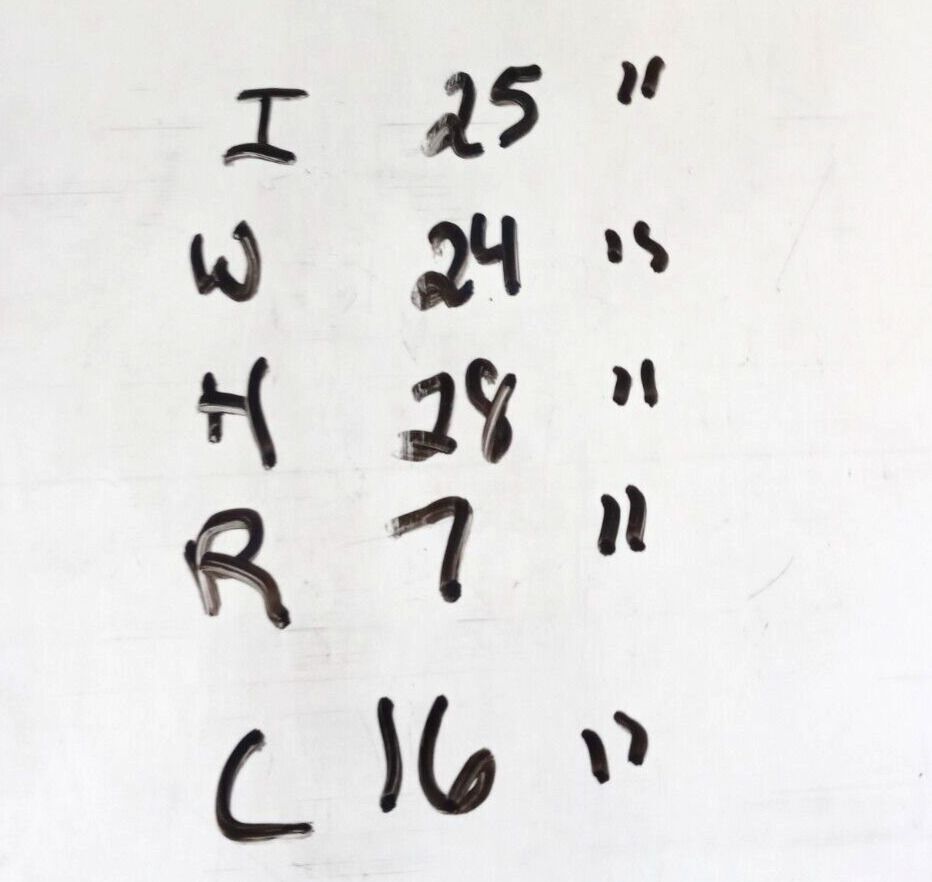 I 25 "
W 24 "
H 28 "
R 7 "
C 16 "